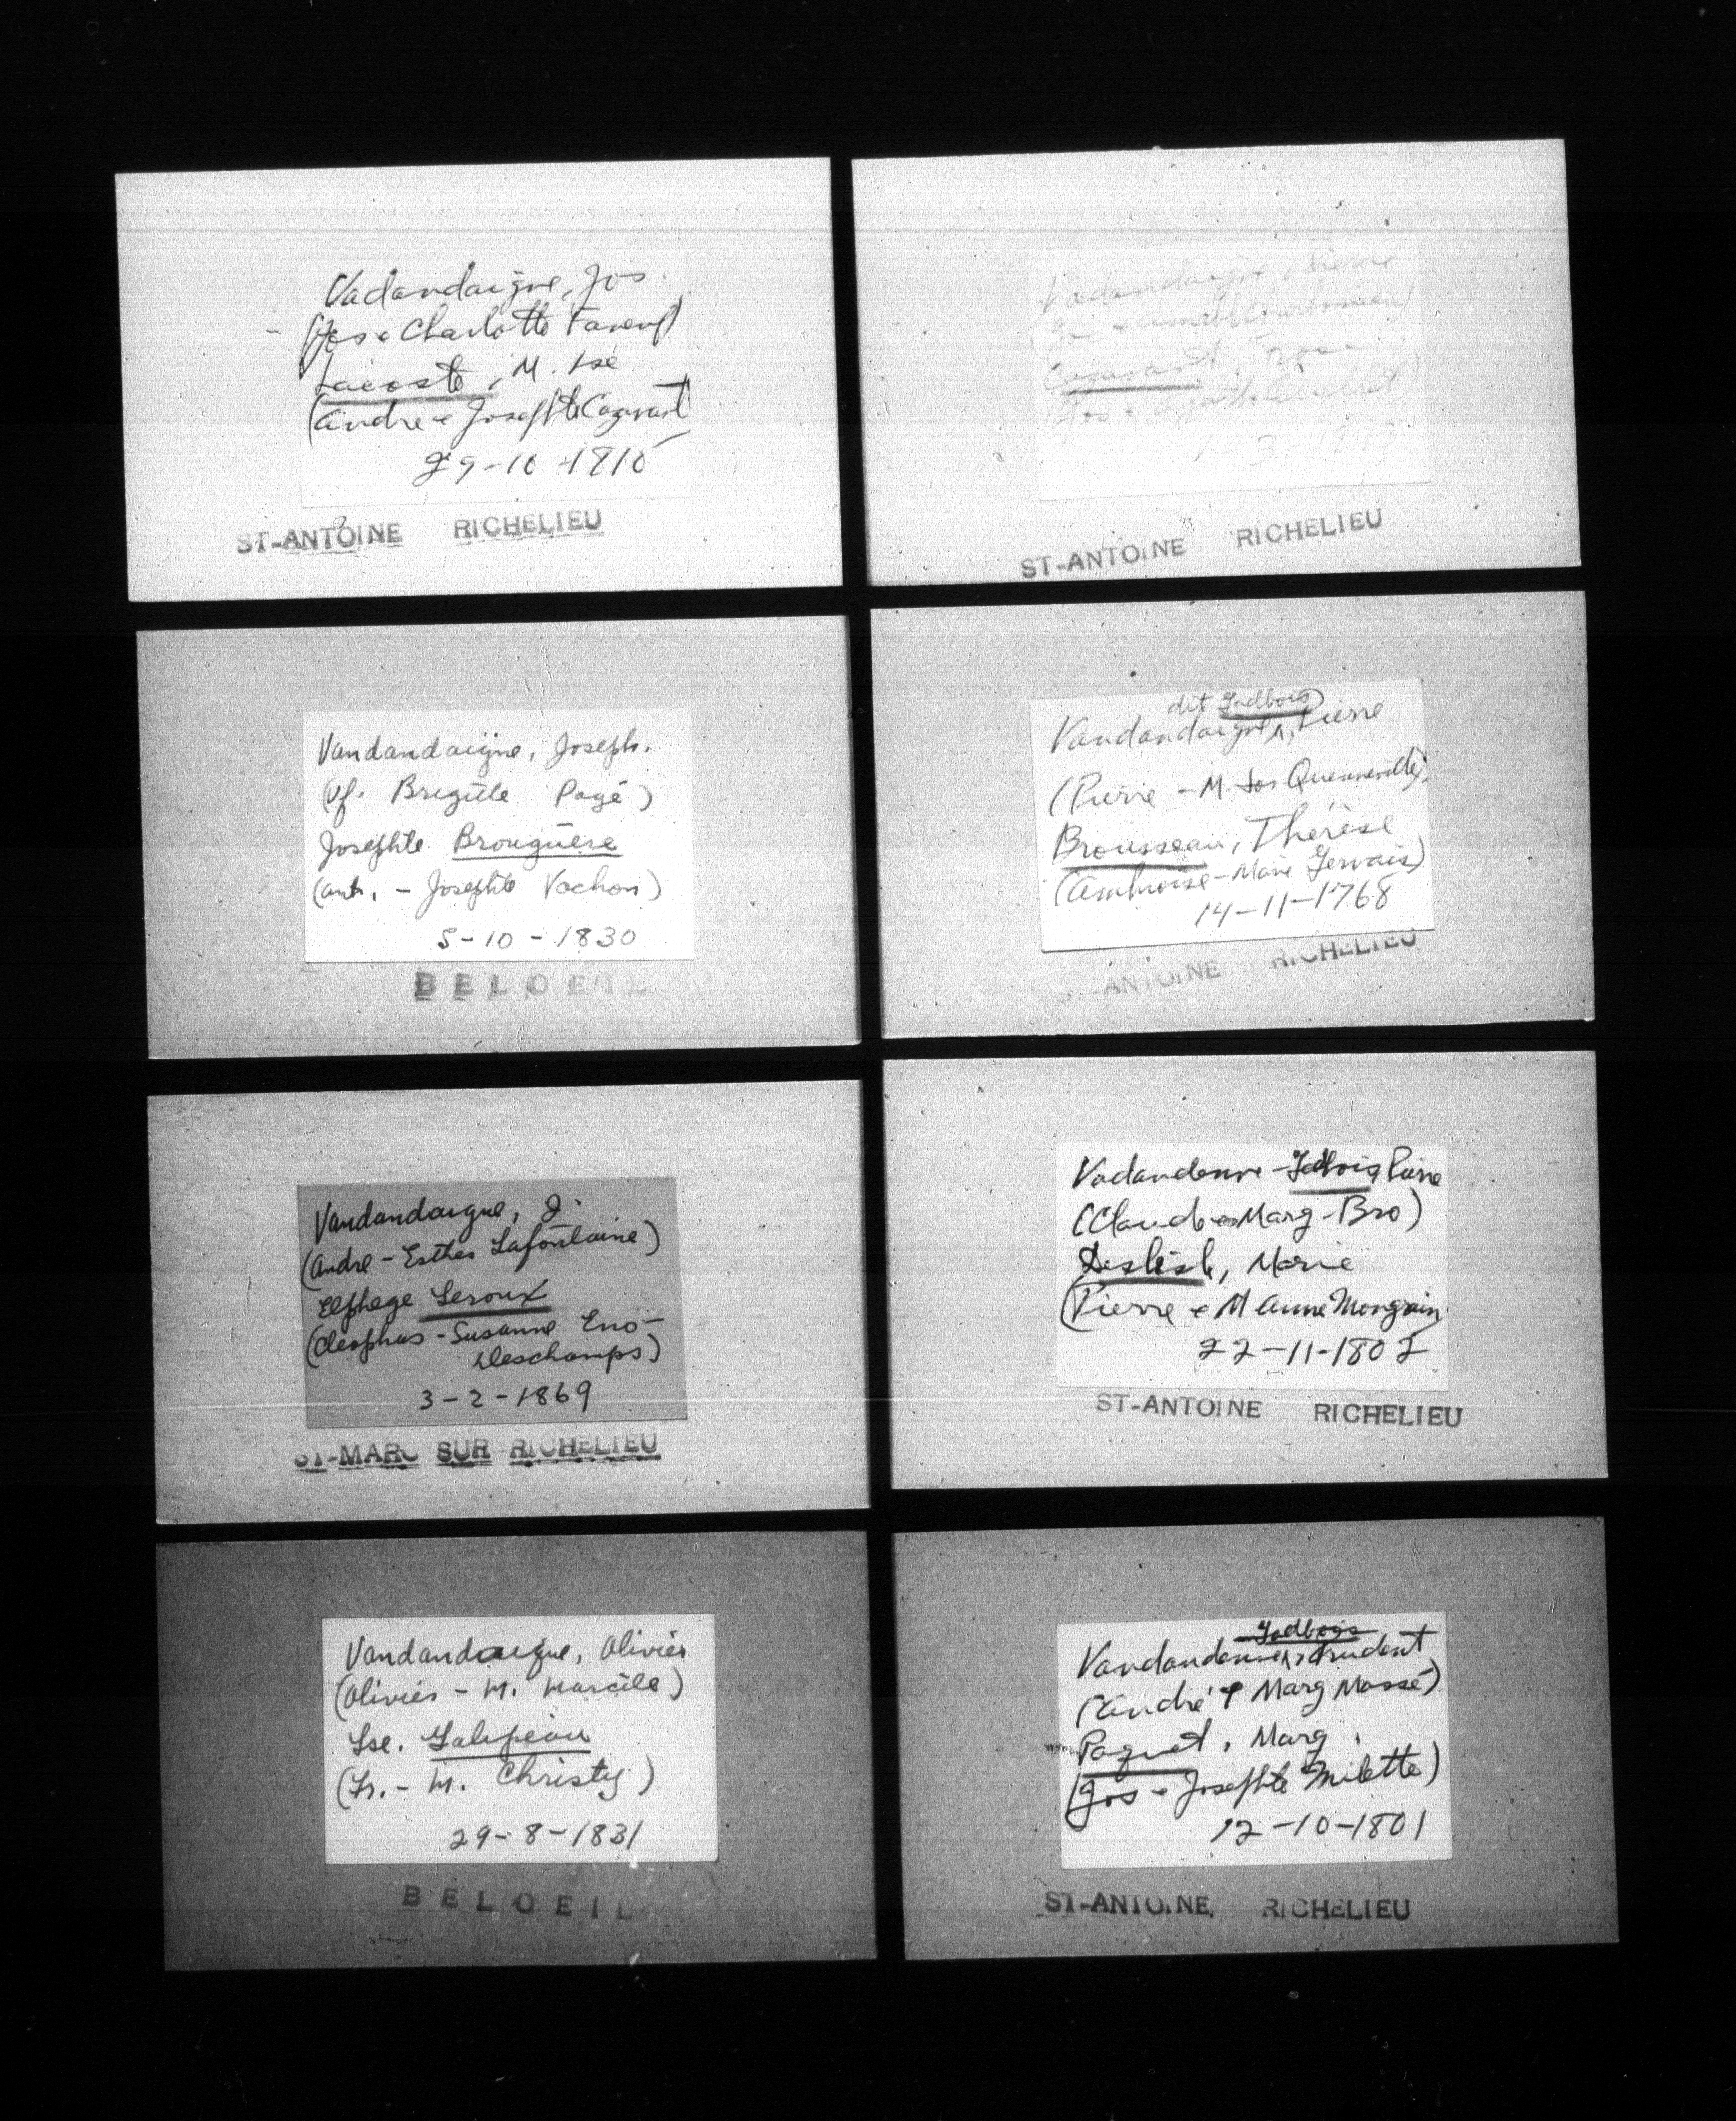 Vadandaigne, Jos.
(Jos & Charlotte
Lacoste, M. Lse
(André & Josephte Cazavant
29-10-1810
ST-ANTOINE RICHELIEU
Vadandaigne, Pierre
(Jos & Amable Charbonneau)
Cazavant
(Jos & Agathe
3 1813
ST-ANTOINE RICHELIEU
Vandandaigne, Joseph.
(Vf. Bregitte Pagé)
Josephte Brouguère
(Ant. - Josephte Vachon)
5-10-1830
BELOEIL
dit Godbois
Vandandaigne, Pierre
(Pierre - M. Jos Quenneville)
Brousseau, Thérèse
(Ambroise - Marie Gervais)
14-11-1768
ANTOINE RICHELIEU
Vandandaigne, J.
(André - Esther Lafontaine)
Elphege Leroux
(Cleophas - Susanne Eno-
Deschamps)
3-2-1869
ST-MARC SUR RICHELIEU
Vadandenne-Godbois, Pierre
(Claude & Marg-Bro)
Deslisle, Marie
(Pierre & M Anne Mongrain
22-11-1802
ST-ANTOINE RICHELIEU
Vandandaigne, Olivier
(Olivier - M. Marcile)
Lse. Galipeau
(Fr. - M. Christy)
29-8-1831
BELOEIL
Godbois
Vandandenne, Prudent
(André & Marg Massé)
Paquet, Marg.
(Jos & Josephte Milette)
12-10-1801
ST-ANTOINE RICHELIEU